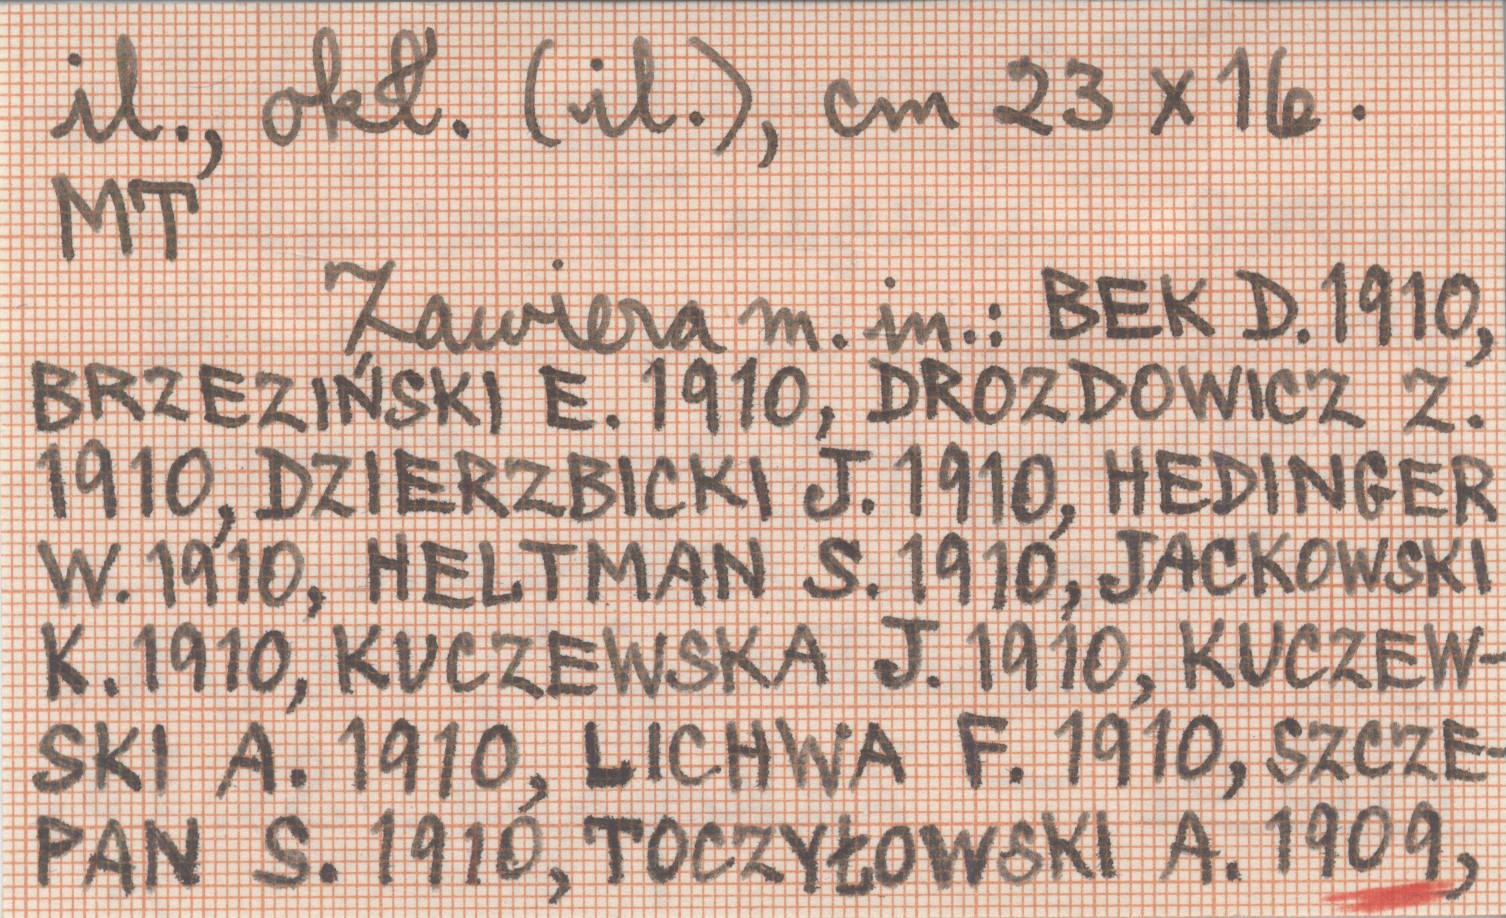 il., okł. (il.), cm 23 x 16.
MT
Zawiera m. in.: BEK D. 1910,
BRZEZIŃSKI E. 1910, DROZDOWICZ Z.
1910, DZIERZBICKI J. 1910, HEDINGER
W. 1910, HELTMAN S. 1910, JACKOWSKI
K. 1910, KUCZEWSKA J. 1910, KUCZEW-
SKI A. 1910, LICHWA F. 1910, SZCZE-
PAN S. 1910, TOCZYŁOWSKI A. 1909,